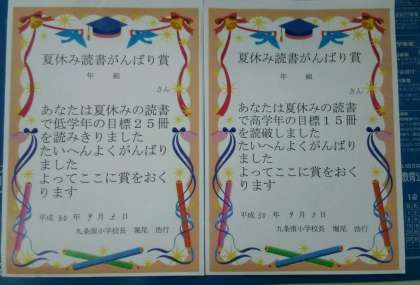 夏休み読書がんばり賞
年 組
さん
あなたは夏休みの読書
で低学年の目標２５冊
を読みきりました
たいへんよくがんばり
ました
よってここに賞をおく
ります
平成 30 年 9 月 3 日
九条南小学校長 堀尾 浩行
夏休み読書がんばり賞
年 組
さん
あなたは夏休みの読書
で高学年の目標１５冊
を読破しました
たいへんよくがんばり
ました
よってここに賞をおく
ります
平成 30 年 9 月 3 日
九条南小学校長 堀尾 浩行